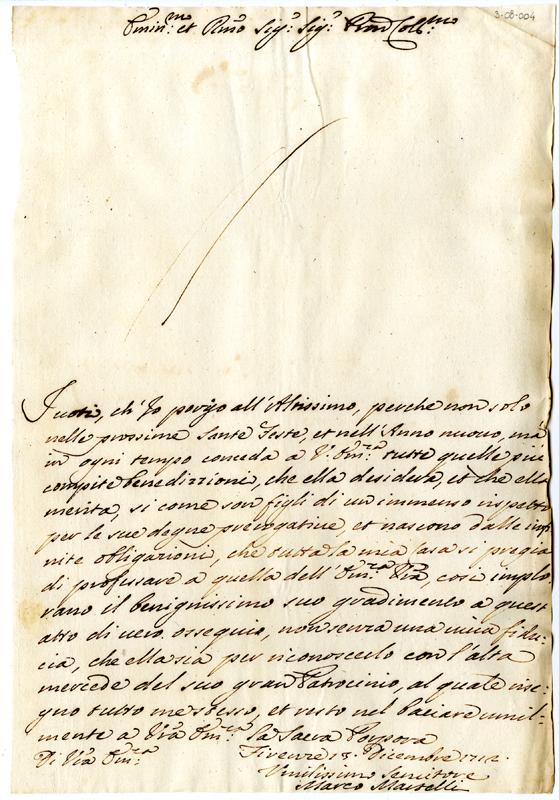 3-08-004
Emin:mo et Rmo Sig:r Sig:r Pron Coll:mo
I voti, ch'Io porgo all'Altissimo, perche non solo
nelle prossime Sante Feste, et nell'Anno nuovo, mà
in ogni tempo conceda à V: Em:za tutte quelle più
compite benedizzioni, che ella desidera, et che ella
merita, si come son figli di un immenso rispetto
per le sue degne prerogative, et nascono dalle infi
nite obligazioni, che tutta la mia Casa si pregia
di professare à quella dell'Em:za Vra, così implo
rano il benignissimo suo gradimento à quest
atto di vero ossequio, non senza una viva fidu:
cia, che ella sia per riconoscerlo con l'alta
mercede del suo gran Patrocinio, al quale rise:
gno tutto me stesso, et resto nel baciare umil:
mente à Vra Em:za la Sacra Porpora
Di Vra Em:za
Firenze 15. Dicembre 1712.
Umilissimo Servitore
Marco Martelli